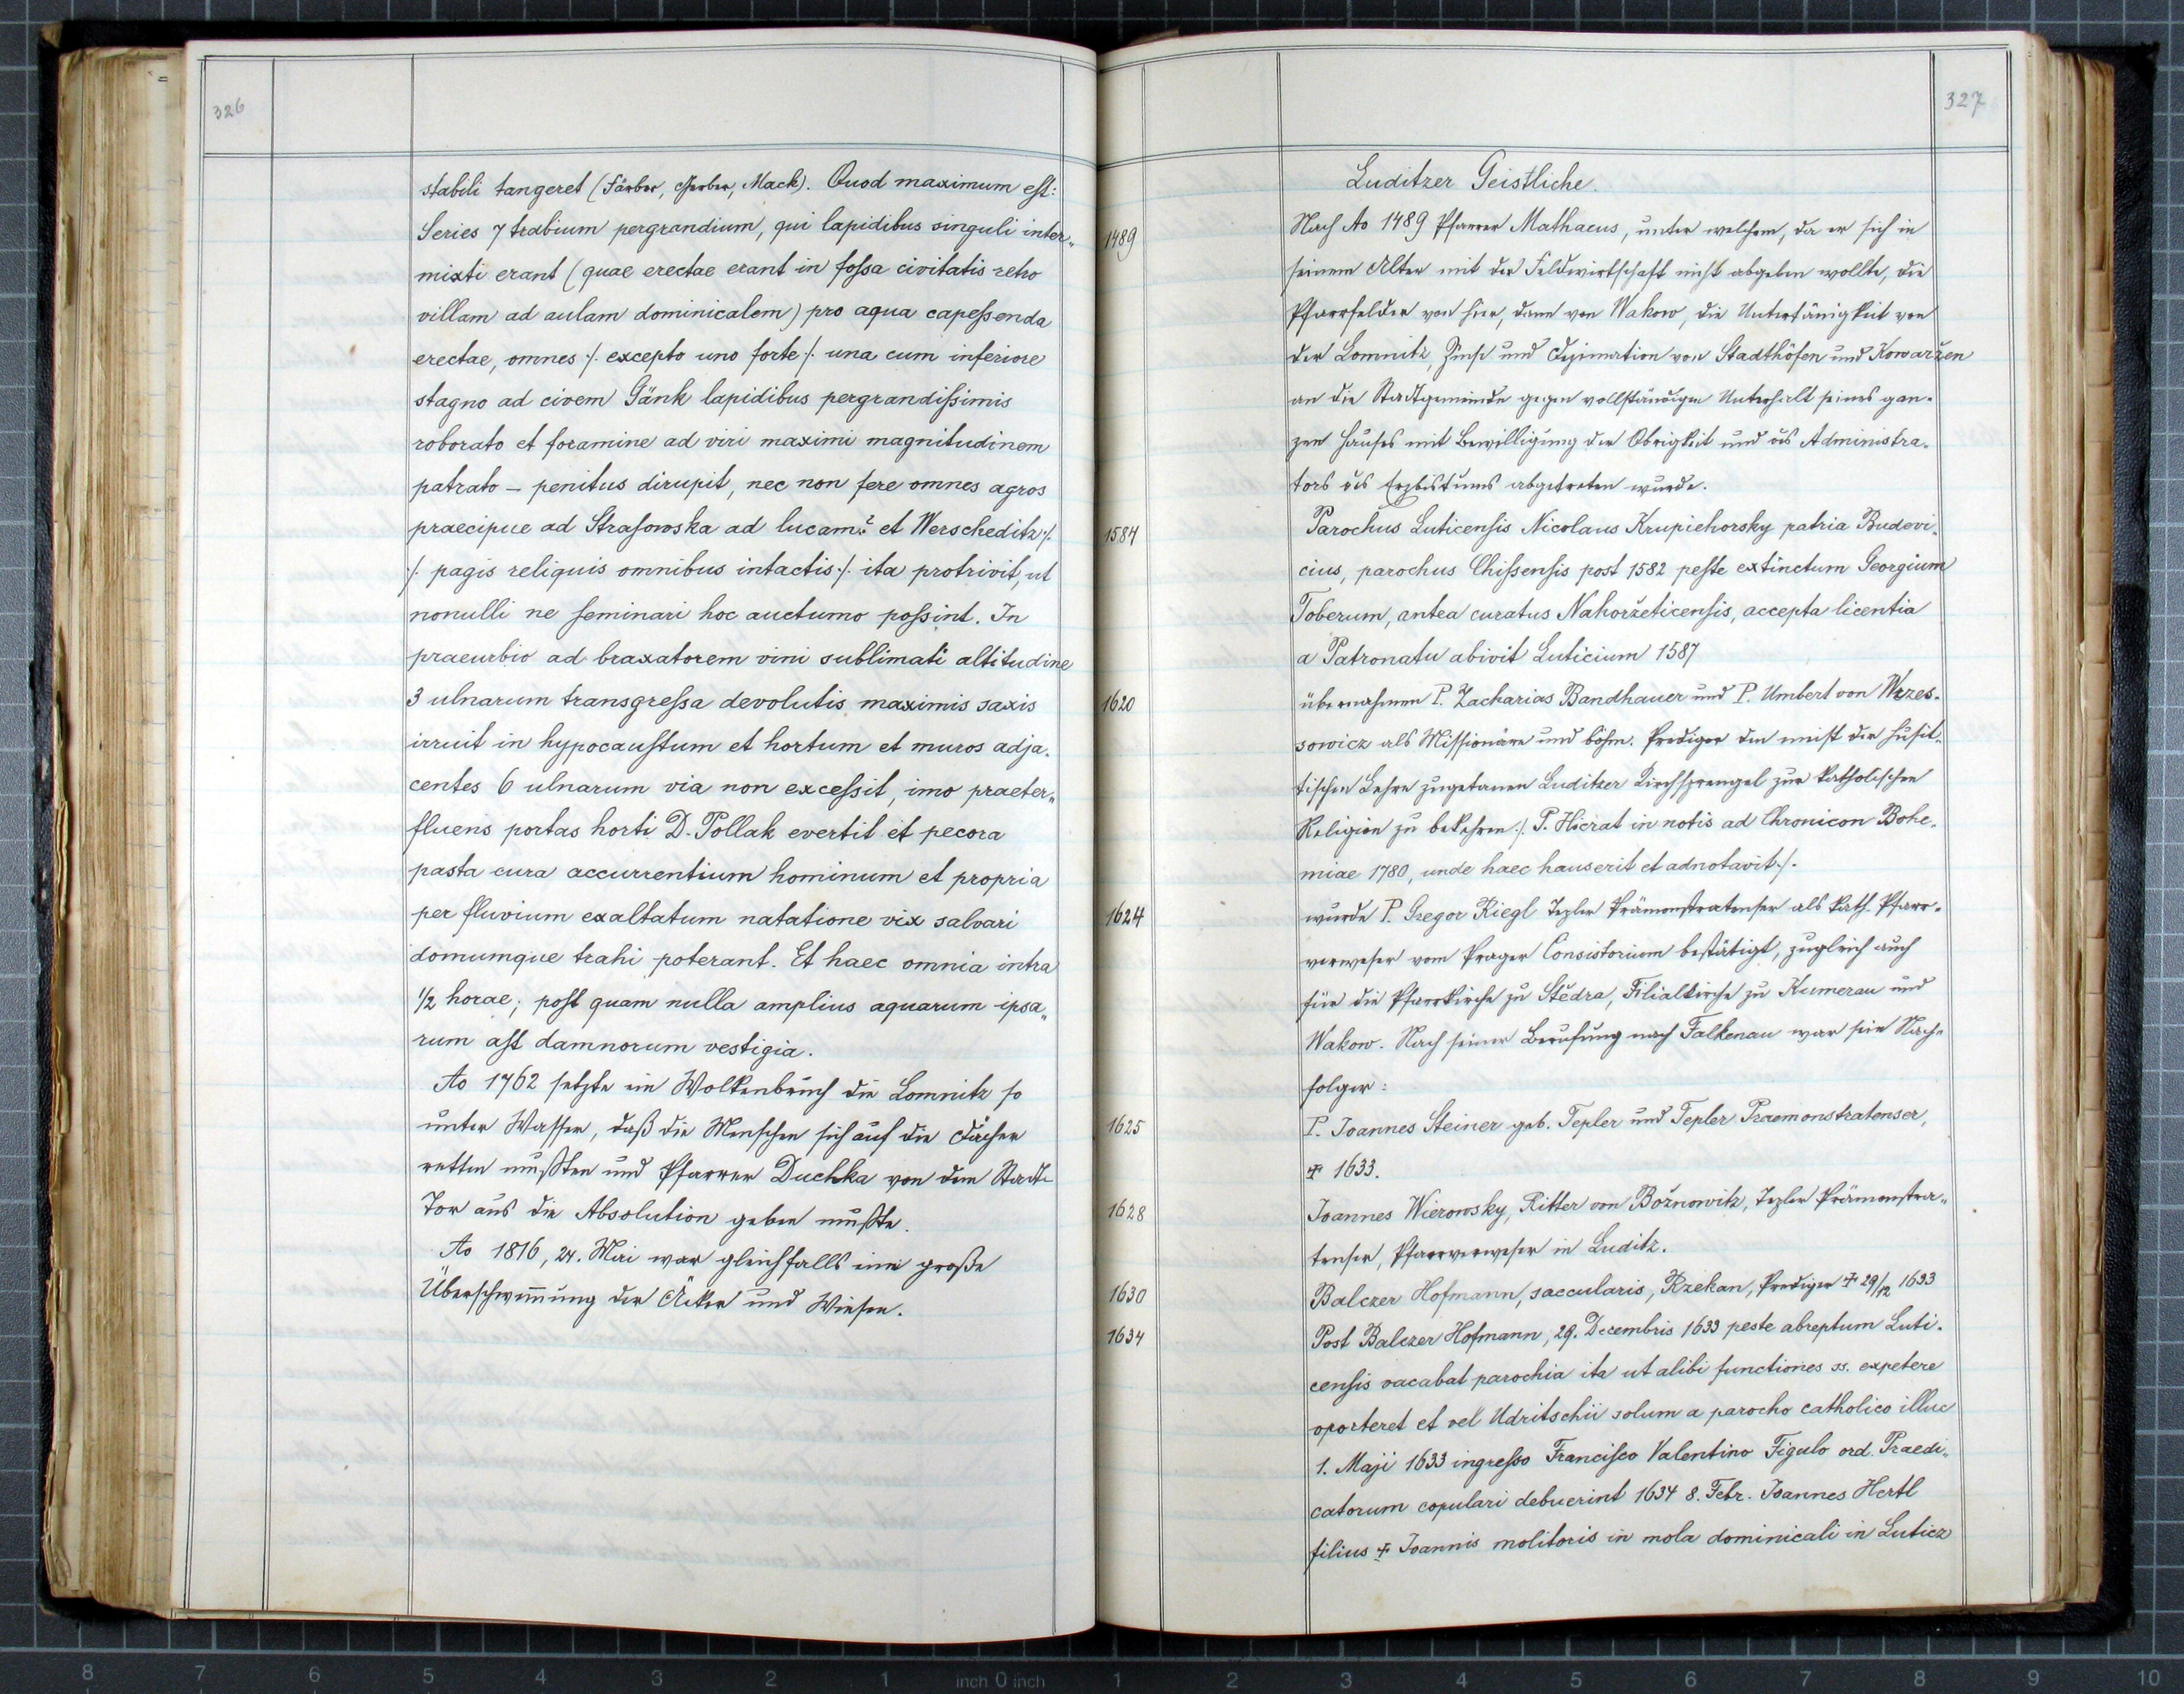 326
stabili tangeret (Färber, Gerber, Mack). Quod maximum est:
Series 7 trabium pergrandium, qui lapidibus singuli inter„
mixti erant (quae erectae erant in fossa civitatis retro
villam ad aulam dominicalem) pro aqua capessenda
erectae, omnes ⁒ excepto uno forte ⁒ una cum inferiore
stagno ad civem Gänk lapidibus pergrandissimis
roborato et foramine ad viri maximi magnitudinem
patrato – penitus dirupit, nec non fere omnes agros
praecipue ad Strasowska ad lucam? et Werscheditz ⁒
⁒ pagis reliquis omnibus intactis ⁒ ita protrivit, ut
nonulli ne seminari hoc auctumo possint. In
praeurbio ad braxatorem vini sublimati altitudine
3 ulnarum transgressa devolutis maximis saxis
irruit in hypocaustum et hortum et muros adja„
centes 6 ulnarum via non excessit, imo praeter„
fluens portas horti D. Pollak evertit et pecora
pasta cura accurrentium hominum et propria
per fluvium exaltatum natatione vix salvari
domumque trahi poterant. Et haec omnia intra
1/2 horae; post quam nulla amplius aquarum ipsa„
rum ast damnorum vestigia.
Ao 1762 setzte ein Wolkenbruch die Lomnitz so
unter Wasser, daß die Menschen sich auf die Dächer
retten mußten und Pfarrer Duchka von dem Stadt-
Tor aus die Absolution geben mußte.
Ao 1816, 24. Mai war gleichfalls eine große
Überschwemmung der Äcker und Wiesen.
327
Luditzer Geistliche.
1489 Nach Ao 1489 Pfarrer Mathaeus, unter welchem, da er sich in
seinem Alter mit der Feldwirtschaft nicht abgeben wollte, die
Pfarrfelder von hier, dann von Wakow, die Untertänigkeit von
der Lomnitz, Zinse und Dezimation von Stadthöfen und Kowaržen
an die Stadtgemeinde gegen vollständigen Unterhalt seines gan-
zen Hauses mit Bewilligung der Obrigkeit und des Administra-
tors des Erzbistums abgetreten wurde.
1584 Parochus Luticensis Nicolaus Krupiehorsky patria Budovi-
cius, parochus Chissensis post 1582 peste extinctum Georgium
Toberum, antea curatus Nahoržeticensis, accepta licentia
a Patronatu abivit Luticium 1587
1620 übernahmen P. Zacharias Bandhauer und P. Umbert von Wrzes-
sowicz als Missionäre und böhm. Prediger den meist der husit-
tischen Lehre zugetanen Luditzer Kirchsprengel zur katholischen
Religion zu bekehren ⁒ P. Hierat in notis ad Chronicon Bohe-
miae 1780, unde haec hauserit et adnotavit ⁒.
1624 wurde P. Gregor Riegl Tepler Prämonstratenser als kath. Pfarr-
verweser vom Prager Consistorium bestätigt, zugleich auch
für die Pfarrkirche zu Stědra, Filialkirche zu Kumerau und
Wakow. Nach seiner Berufung nach Falkenau war sein Nach-
folger:
1625 P. Joannes Steiner geb. Tepler und Tepler Praemonstratenser,
† 1633.
1628 Joannes Wierowsky, Ritter von Božnowitz, Tepler Prämonstra„
tenser, Pfarrverweser in Luditz.
1630 Balczer Hofmann, saecularis, Rzekan, Prediger † 29/12 1633
1634 Post Balczer Hofmann, 29. Decembris 1633 peste abreptum Luti-
censis vacabat parochia ita ut alibi functiones ss. expetere
oporteret et vel Udritschii solum a parocho catholico illuc
1. Maji 1633 ingresso Francisco Valentino Figulo ord. Praedi-
catorum copulari debuerint 1634 8. Febr. Joannes Hertl
filius † Joannis molitoris in mola dominicali in Luticz
8 7 6 5 4 3 2 1 inch 0 inch 1 2 3 4 5 6 7 8 9 10